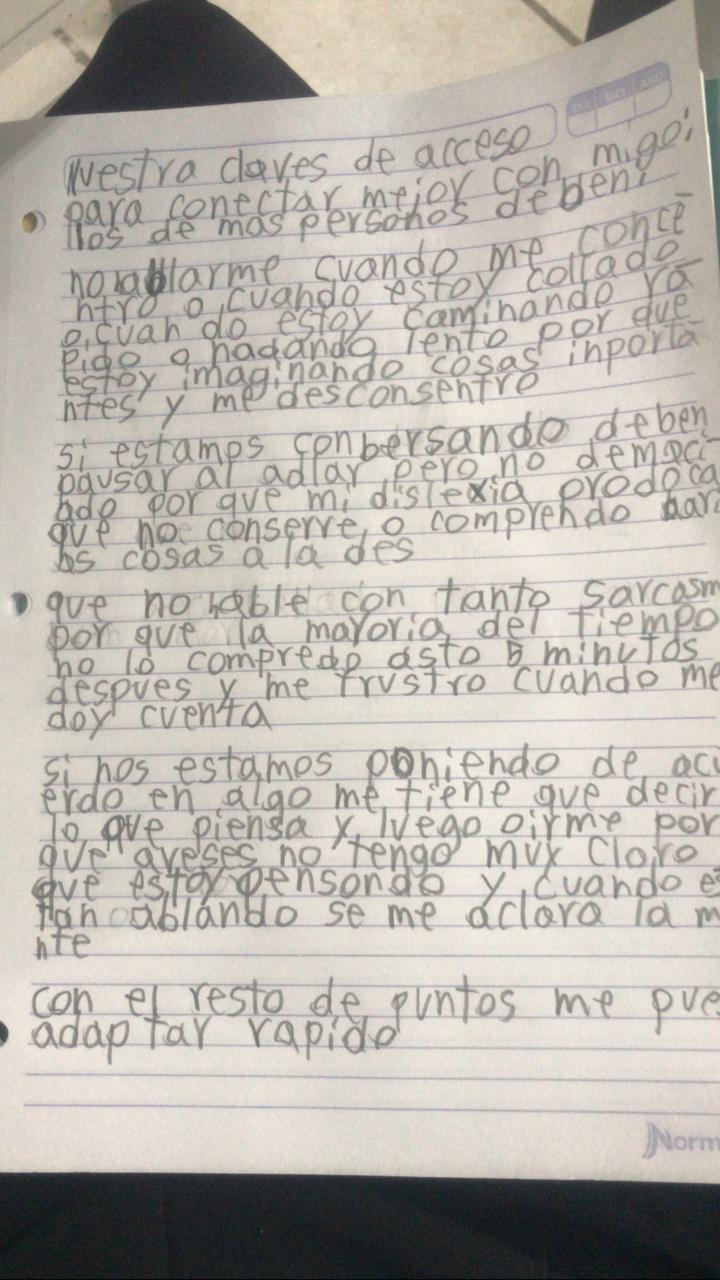 DIA MES AÑO
Nuestra claves de acceso
para conectar mejor con migo:
llos de mas personas deben:
no ablarme cuando me conce
ntro o cuando estoy collado
o cuan do estoy caminando ra
pido o nadando lento por que
estoy imaginando cosas inporta
ntes y me desconsentro
si estamos conbersando deben
pausar al adlar pero no demaci
ado por que mi dislexia prodoca
que no conserve o comprendo
as cosas a la des
que no hable con tanto sarcasm
por que la mayoria del tiempo
no lo compredo asto 5 minutos
despues y me frustro cuando me
doy cuenta
si nos estamos poniendo de acu
erdo en algo me tiene que decir
lo que piensa y luego oirme por
que aveses no tengo muy claro
que estoy pensando y cuando es
tan ablando se me aclara la m
nte
con el resto de puntos me pue
adap tar rapido
Norm